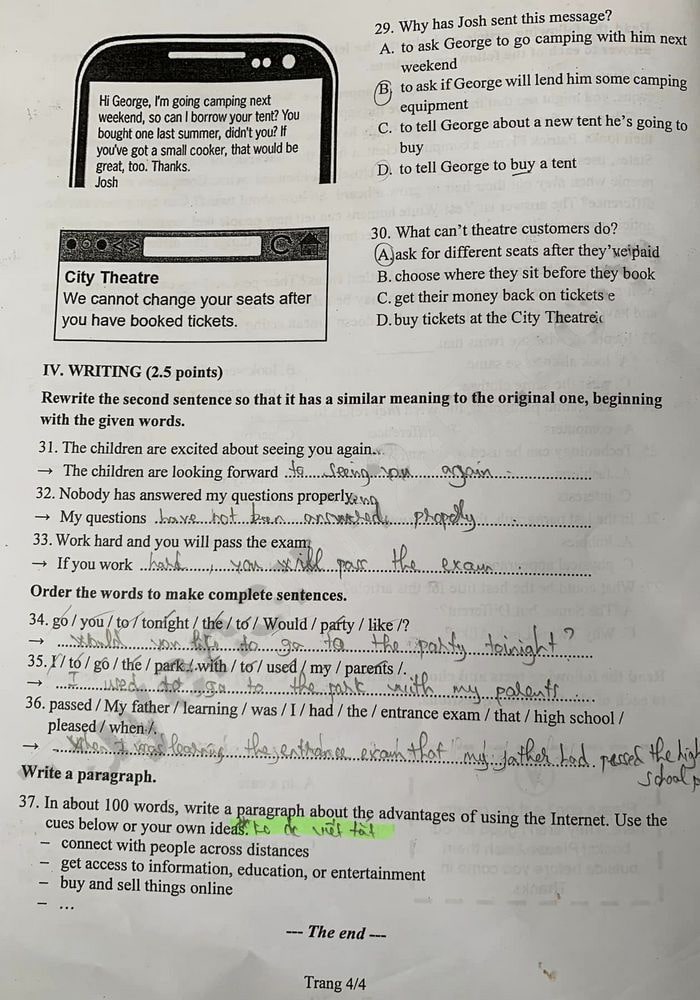 Hi George, I'm going camping next
weekend, so can I borrow your tent? You
bought one last summer, didn't you? If
you've got a small cooker, that would be
great, too. Thanks.
Josh
29. Why has Josh sent this message?
A. to ask George to go camping with him next
weekend
B. to ask if George will lend him some camping
equipment
C. to tell George about a new tent he's going to
buy
D. to tell George to buy a tent
City Theatre
We cannot change your seats after
you have booked tickets.
30. What can't theatre customers do?
A. ask for different seats after they've paid
B. choose where they sit before they book
C. get their money back on tickets
D. buy tickets at the City Theatre
IV. WRITING (2.5 points)
Rewrite the second sentence so that it has a similar meaning to the original one, beginning
with the given words.
31. The children are excited about seeing you again.
→ The children are looking forward to seeing you again
32. Nobody has answered my questions properly.
→ My questions have not been answered
33. Work hard and you will pass the exam.
→ If you work hard, you will pass the exam
Order the words to make complete sentences.
34. go / you / to / tonight / the / to / Would / party / like /?
→ would you like to go to the party toinight?
35. I / to / go / the / park / with / to / used / my / parents /.
→ I used to go to the park with my parents
36. passed / My father / learning / was / I / had / the / entrance exam / that / high school /
pleased / when /.
→ when I was learning the entrance exam that my father had passed the high
school
Write a paragraph.
37. In about 100 words, write a paragraph about the advantages of using the Internet. Use the
cues below or your own ideas. ko đc viết tắt
– connect with people across distances
– get access to information, education, or entertainment
– buy and sell things online
– ...
--- The end ---
Trang 4/4